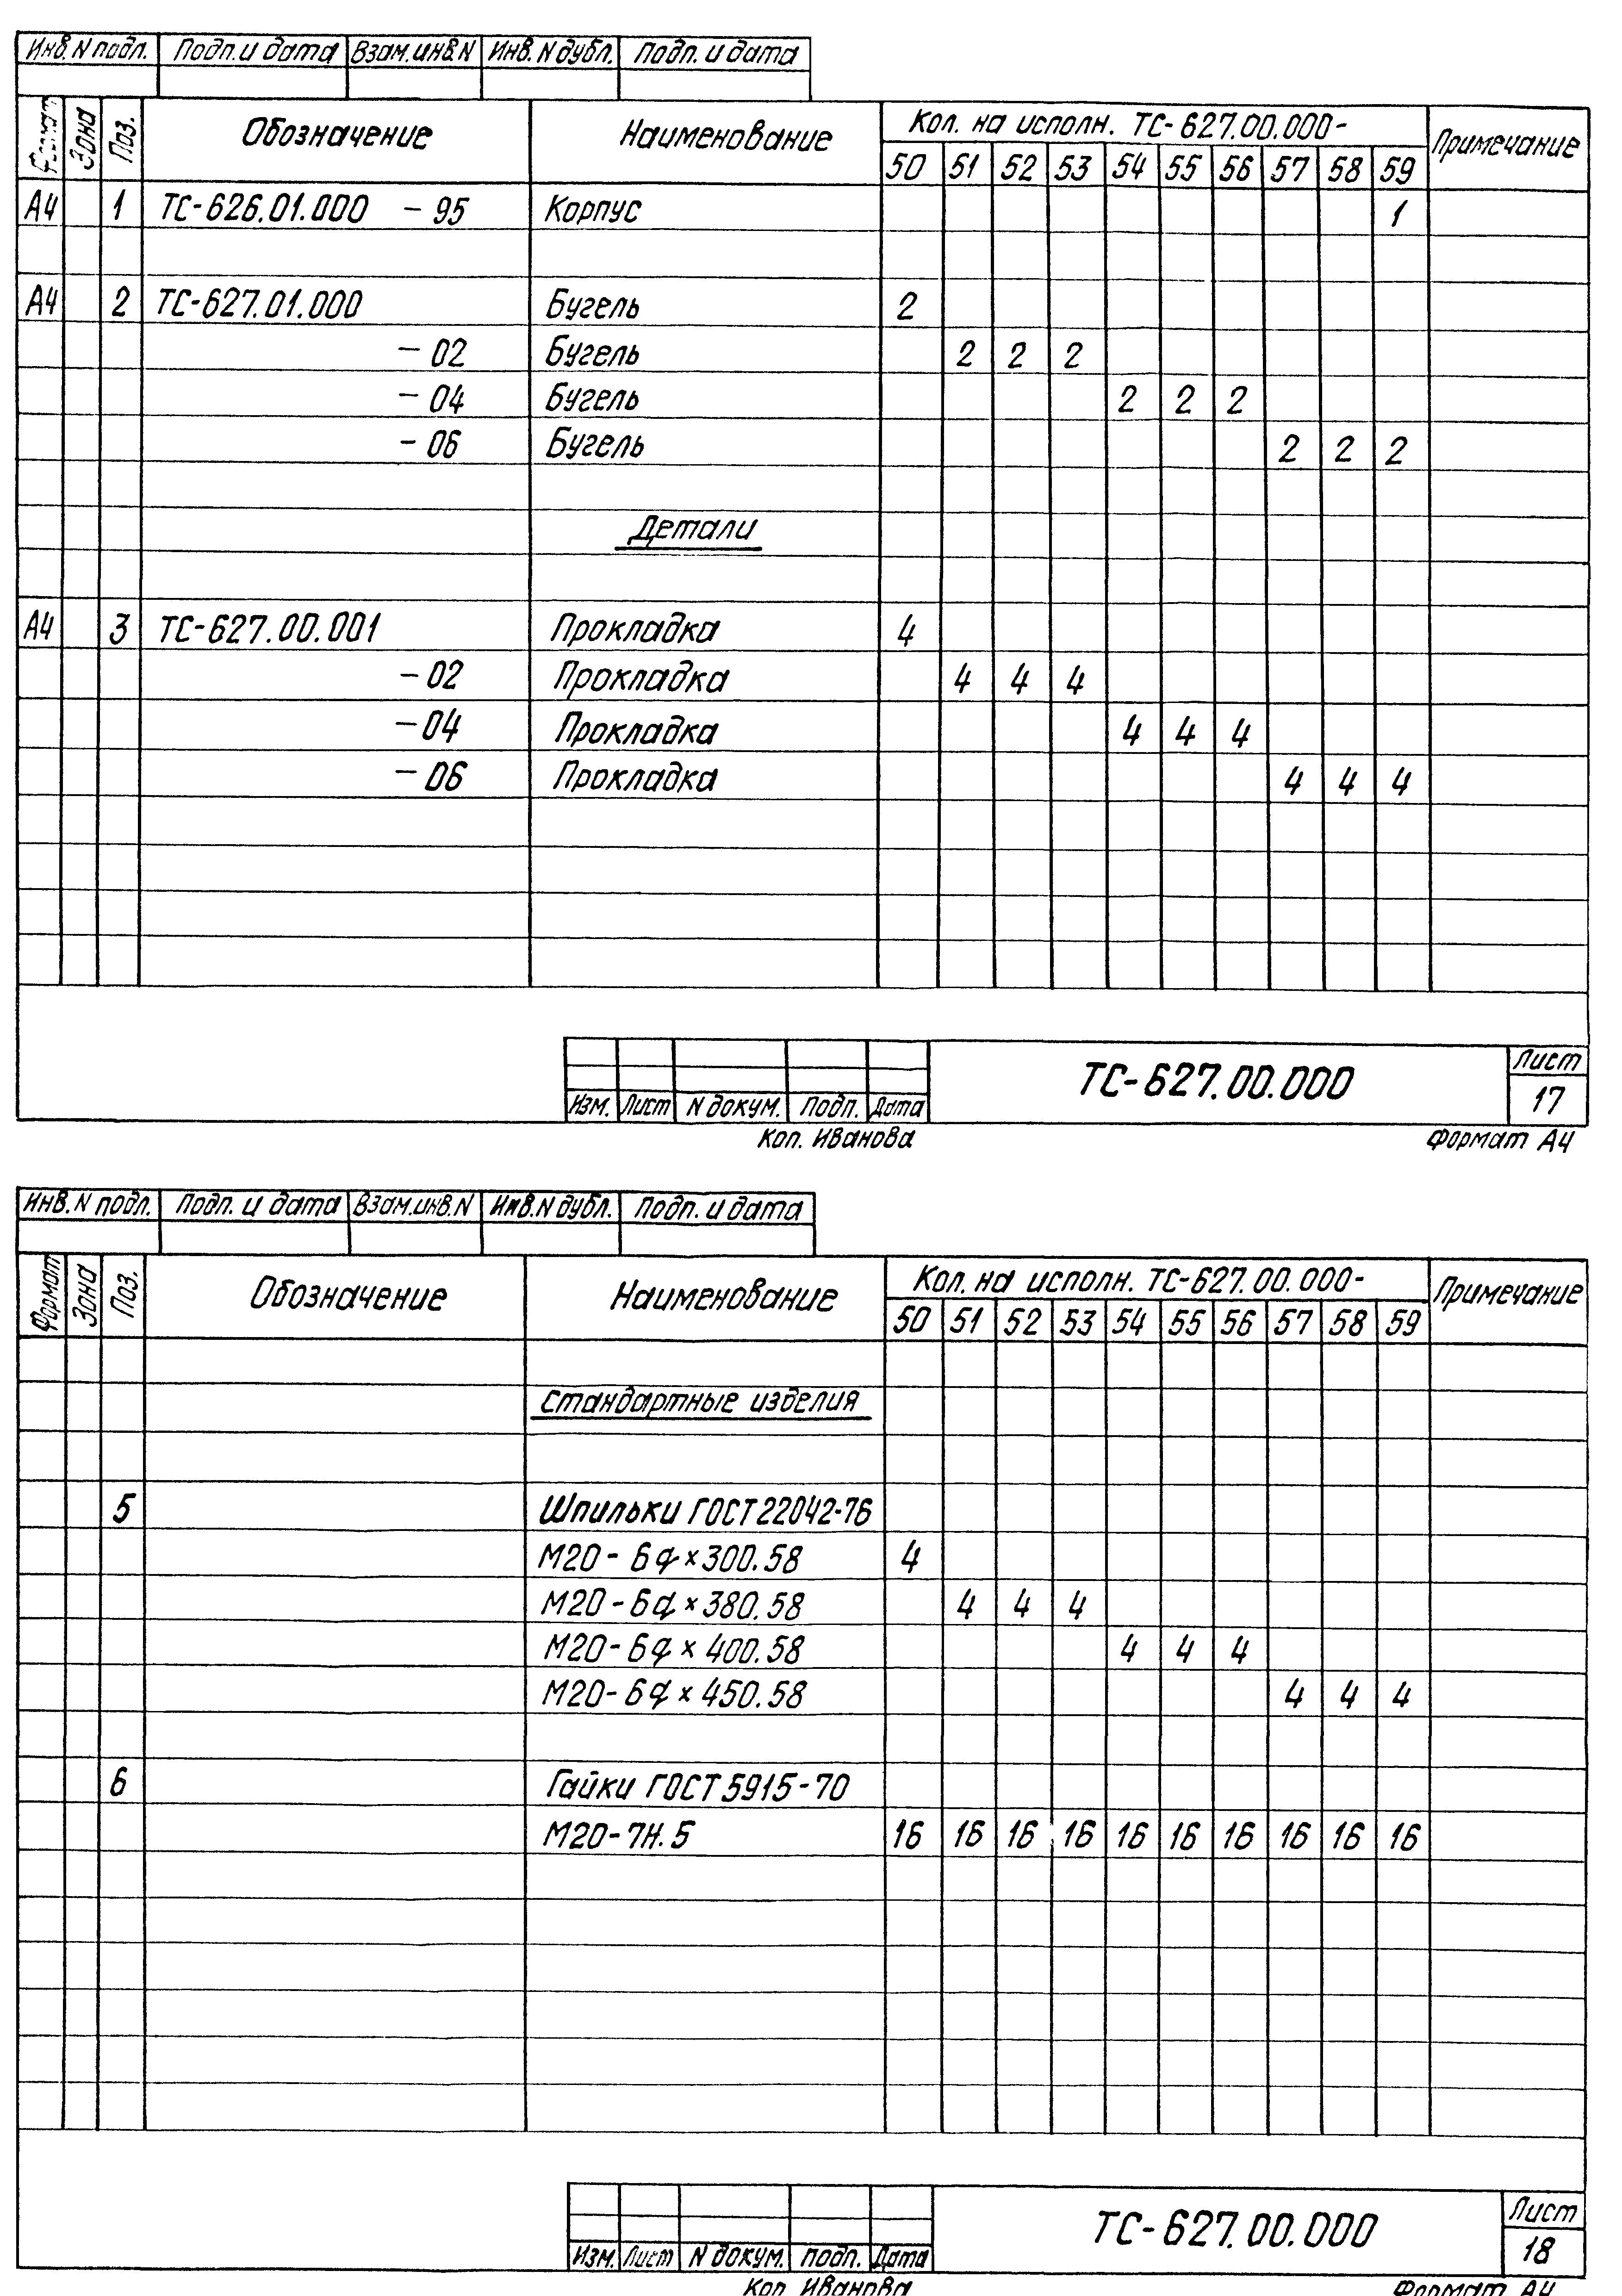 Инв.N подл. Подп. и дата Взам.инв.N Инв.N дубл. Подп. и дата
Формат Зона Поз. Обозначение Наименование Кол. на исполн. ТС-627.00.000- Примечание
50 51 52 53 54 55 56 57 58 59
А4 1 ТС-626.01.000 -95 Корпус 1
А4 2 ТС-627.01.000 Бугель 2
-02 Бугель 2 2 2
-04 Бугель 2 2 2
-06 Бугель 2 2 2
Детали
А4 3 ТС-627.00.001 Прокладка 4
-02 Прокладка 4 4 4
-04 Прокладка 4 4 4
-06 Прокладка 4 4 4
Изм. Лист N докум. Подп. Дата ТС-627.00.000 Лист
17
Коп. Иванова Формат А4
Инв.N подл. Подп. и дата Взам.инв.N Инв.N дубл. Подп. и дата
Формат Зона Поз. Обозначение Наименование Кол. на исполн. ТС-627.00.000- Примечание
50 51 52 53 54 55 56 57 58 59
Стандартные изделия
5 Шпильки ГОСТ 22042-76
М20-6g×300.58 4
М20-6g×380.58 4 4 4
М20-6g×400.58 4 4 4
М20-6g×450.58 4 4 4
6 Гайки ГОСТ 5915-70
М20-7Н.5 16 16 16 16 16 16 16 16 16 16
Изм. Лист N докум. Подп. Дата ТС-627.00.000 Лист
18
Коп. Иванова Формат А4